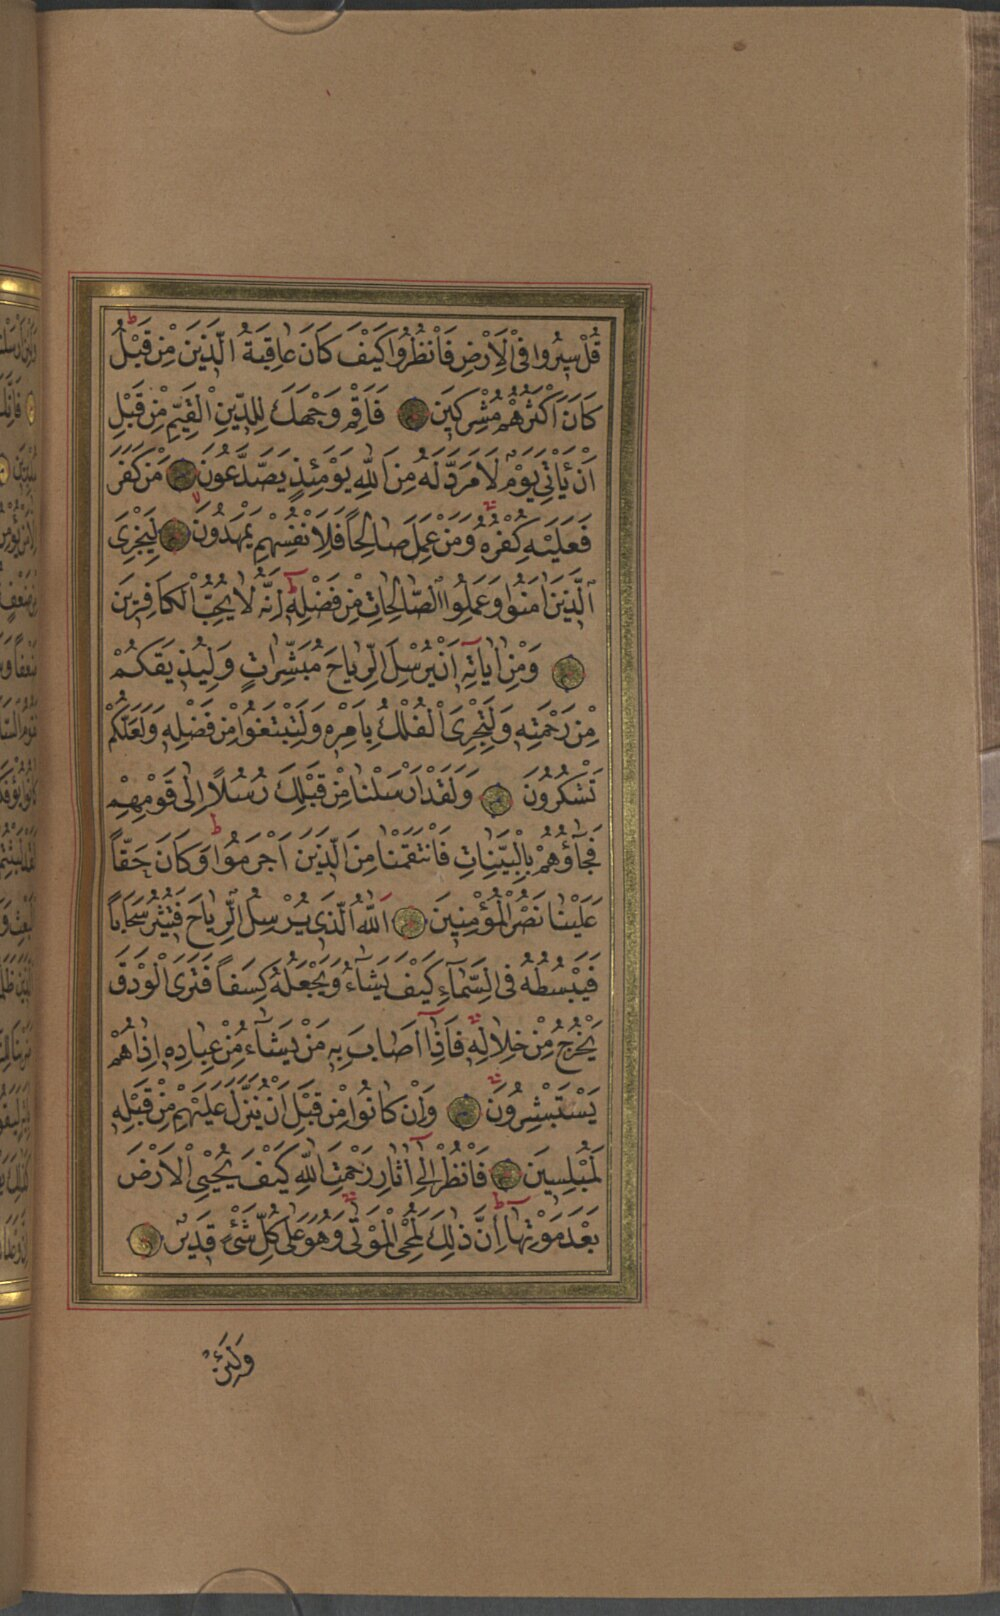 قُلْ سِيرُوا فِي الْاَرْضِ فَانْظُرُوا كَيْفَ كَانَ عَاقِبَةُ الَّذِينَ مِنْ قَبْلُ
كَانَ اَكْثَرُهُمْ مُشْرِكِينَ فَاَقِمْ وَجْهَكَ لِلدِّينِ الْقَيِّمِ مِنْ قَبْلِ
اَنْ يَأْتِيَ يَوْمٌ لَا مَرَدَّ لَهُ مِنَ اللّٰهِ يَوْمَئِذٍ يَصَّدَّعُونَ مَنْ كَفَرَ
فَعَلَيْهِ كُفْرُهُ وَمَنْ عَمِلَ صَالِحًا فَلِاَنْفُسِهِمْ يَمْهَدُونَ لِيَجْزِيَ
الَّذِينَ اٰمَنُوا وَعَمِلُوا الصَّالِحَاتِ مِنْ فَضْلِهِ اِنَّهُ لَا يُحِبُّ الْكَافِرِينَ
وَمِنْ اٰيَاتِهِ اَنْ يُرْسِلَ الرِّيَاحَ مُبَشِّرَاتٍ وَلِيُذِيقَكُمْ
مِنْ رَحْمَتِهِ وَلِتَجْرِيَ الْفُلْكُ بِاَمْرِهِ وَلِتَبْتَغُوا مِنْ فَضْلِهِ وَلَعَلَّكُمْ
تَشْكُرُونَ وَلَقَدْ اَرْسَلْنَا مِنْ قَبْلِكَ رُسُلًا اِلٰى قَوْمِهِمْ
فَجَاؤُهُمْ بِالْبَيِّنَاتِ فَانْتَقَمْنَا مِنَ الَّذِينَ اَجْرَمُوا وَكَانَ حَقًّا
عَلَيْنَا نَصْرُ الْمُؤْمِنِينَ اَللّٰهُ الَّذِي يُرْسِلُ الرِّيَاحَ فَتُثِيرُ سَحَابًا
فَيَبْسُطُهُ فِي السَّمَاءِ كَيْفَ يَشَاءُ وَيَجْعَلُهُ كِسَفًا فَتَرَى الْوَدْقَ
يَخْرُجُ مِنْ خِلَالِهِ فَاِذَا اَصَابَ بِهِ مَنْ يَشَاءُ مِنْ عِبَادِهِ اِذَا هُمْ
يَسْتَبْشِرُونَ وَاِنْ كَانُوا مِنْ قَبْلِ اَنْ يُنَزَّلَ عَلَيْهِمْ مِنْ قَبْلِهِ
لَمُبْلِسِينَ فَانْظُرْ اِلٰى اٰثَارِ رَحْمَتِ اللّٰهِ كَيْفَ يُحْيِي الْاَرْضَ
بَعْدَ مَوْتِهَا اِنَّ ذٰلِكَ لَمُحْيِ الْمَوْتٰى وَهُوَ عَلٰى كُلِّ شَيْءٍ قَدِيرٌ
وَلَئِنْ